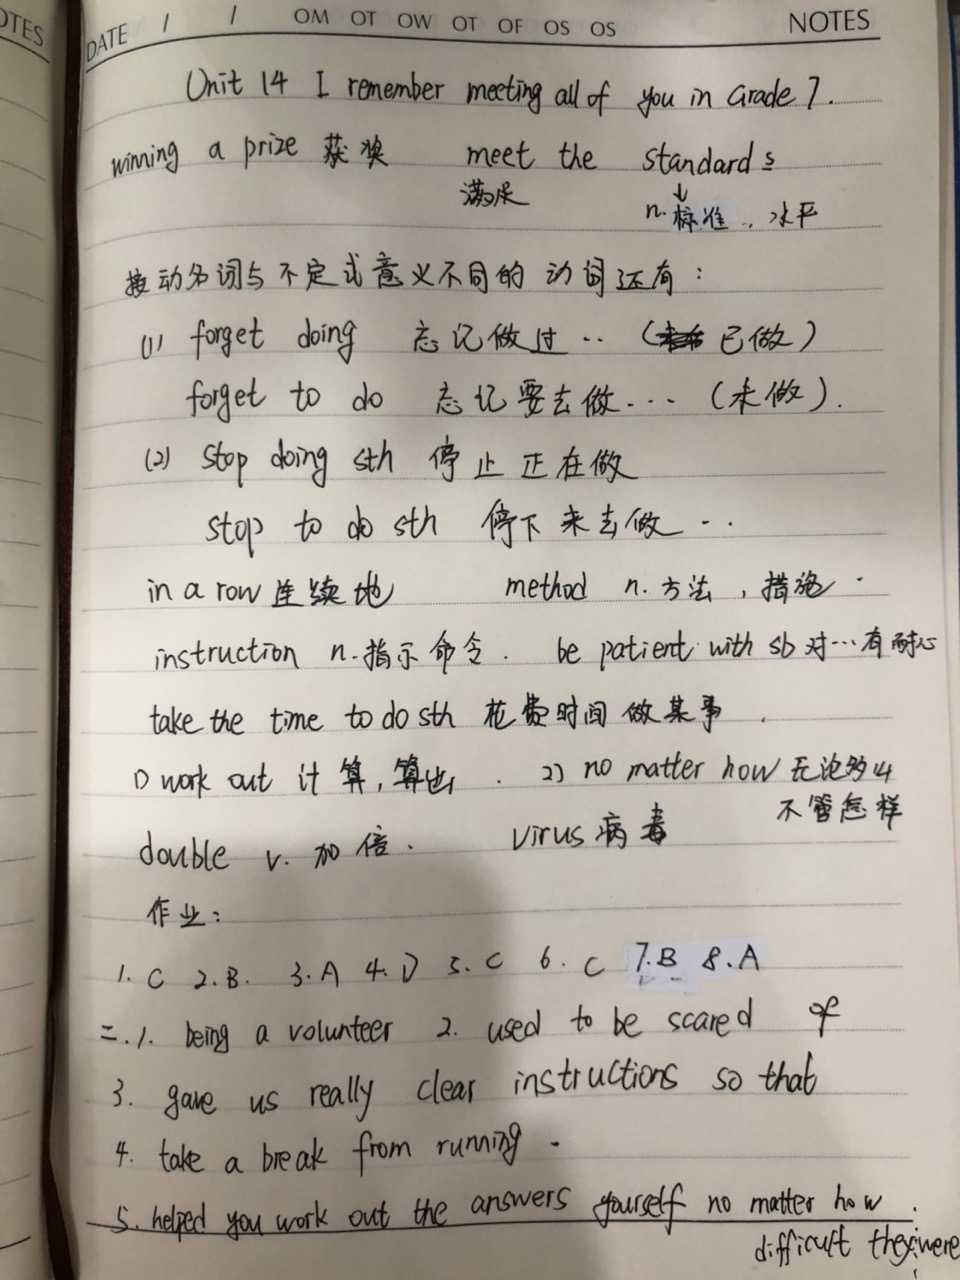 OTES
DATE / / OM OT OW OT OF OS OS NOTES
Unit 14 I remember meeting all of you in Grade 7.
winning a prize 获奖 meet the standards
满足 n. 标准，水平
接动名词与不定式意义不同的动词还有：
(1) forget doing 忘记做过.. (已做)
forget to do 忘记要去做... (未做).
(2) stop doing sth 停止正在做
stop to do sth 停下来去做...
in a row 连续地 method n. 方法，措施.
instruction n. 指示命令. be patient with sb 对...有耐心
take the time to do sth 花费时间做某事.
1) work out 计算, 算出. 2) no matter how 无论多么
不管怎样
double v. 加倍. virus 病毒
作业：
1. C 2. B. 3. A 4. D 5. C 6. C 7. B 8. A
二. 1. being a volunteer 2. used to be scared of
3. gave us really clear instructions so that
4. take a break from running.
5. helped you work out the answers yourself no matter how
difficult they were